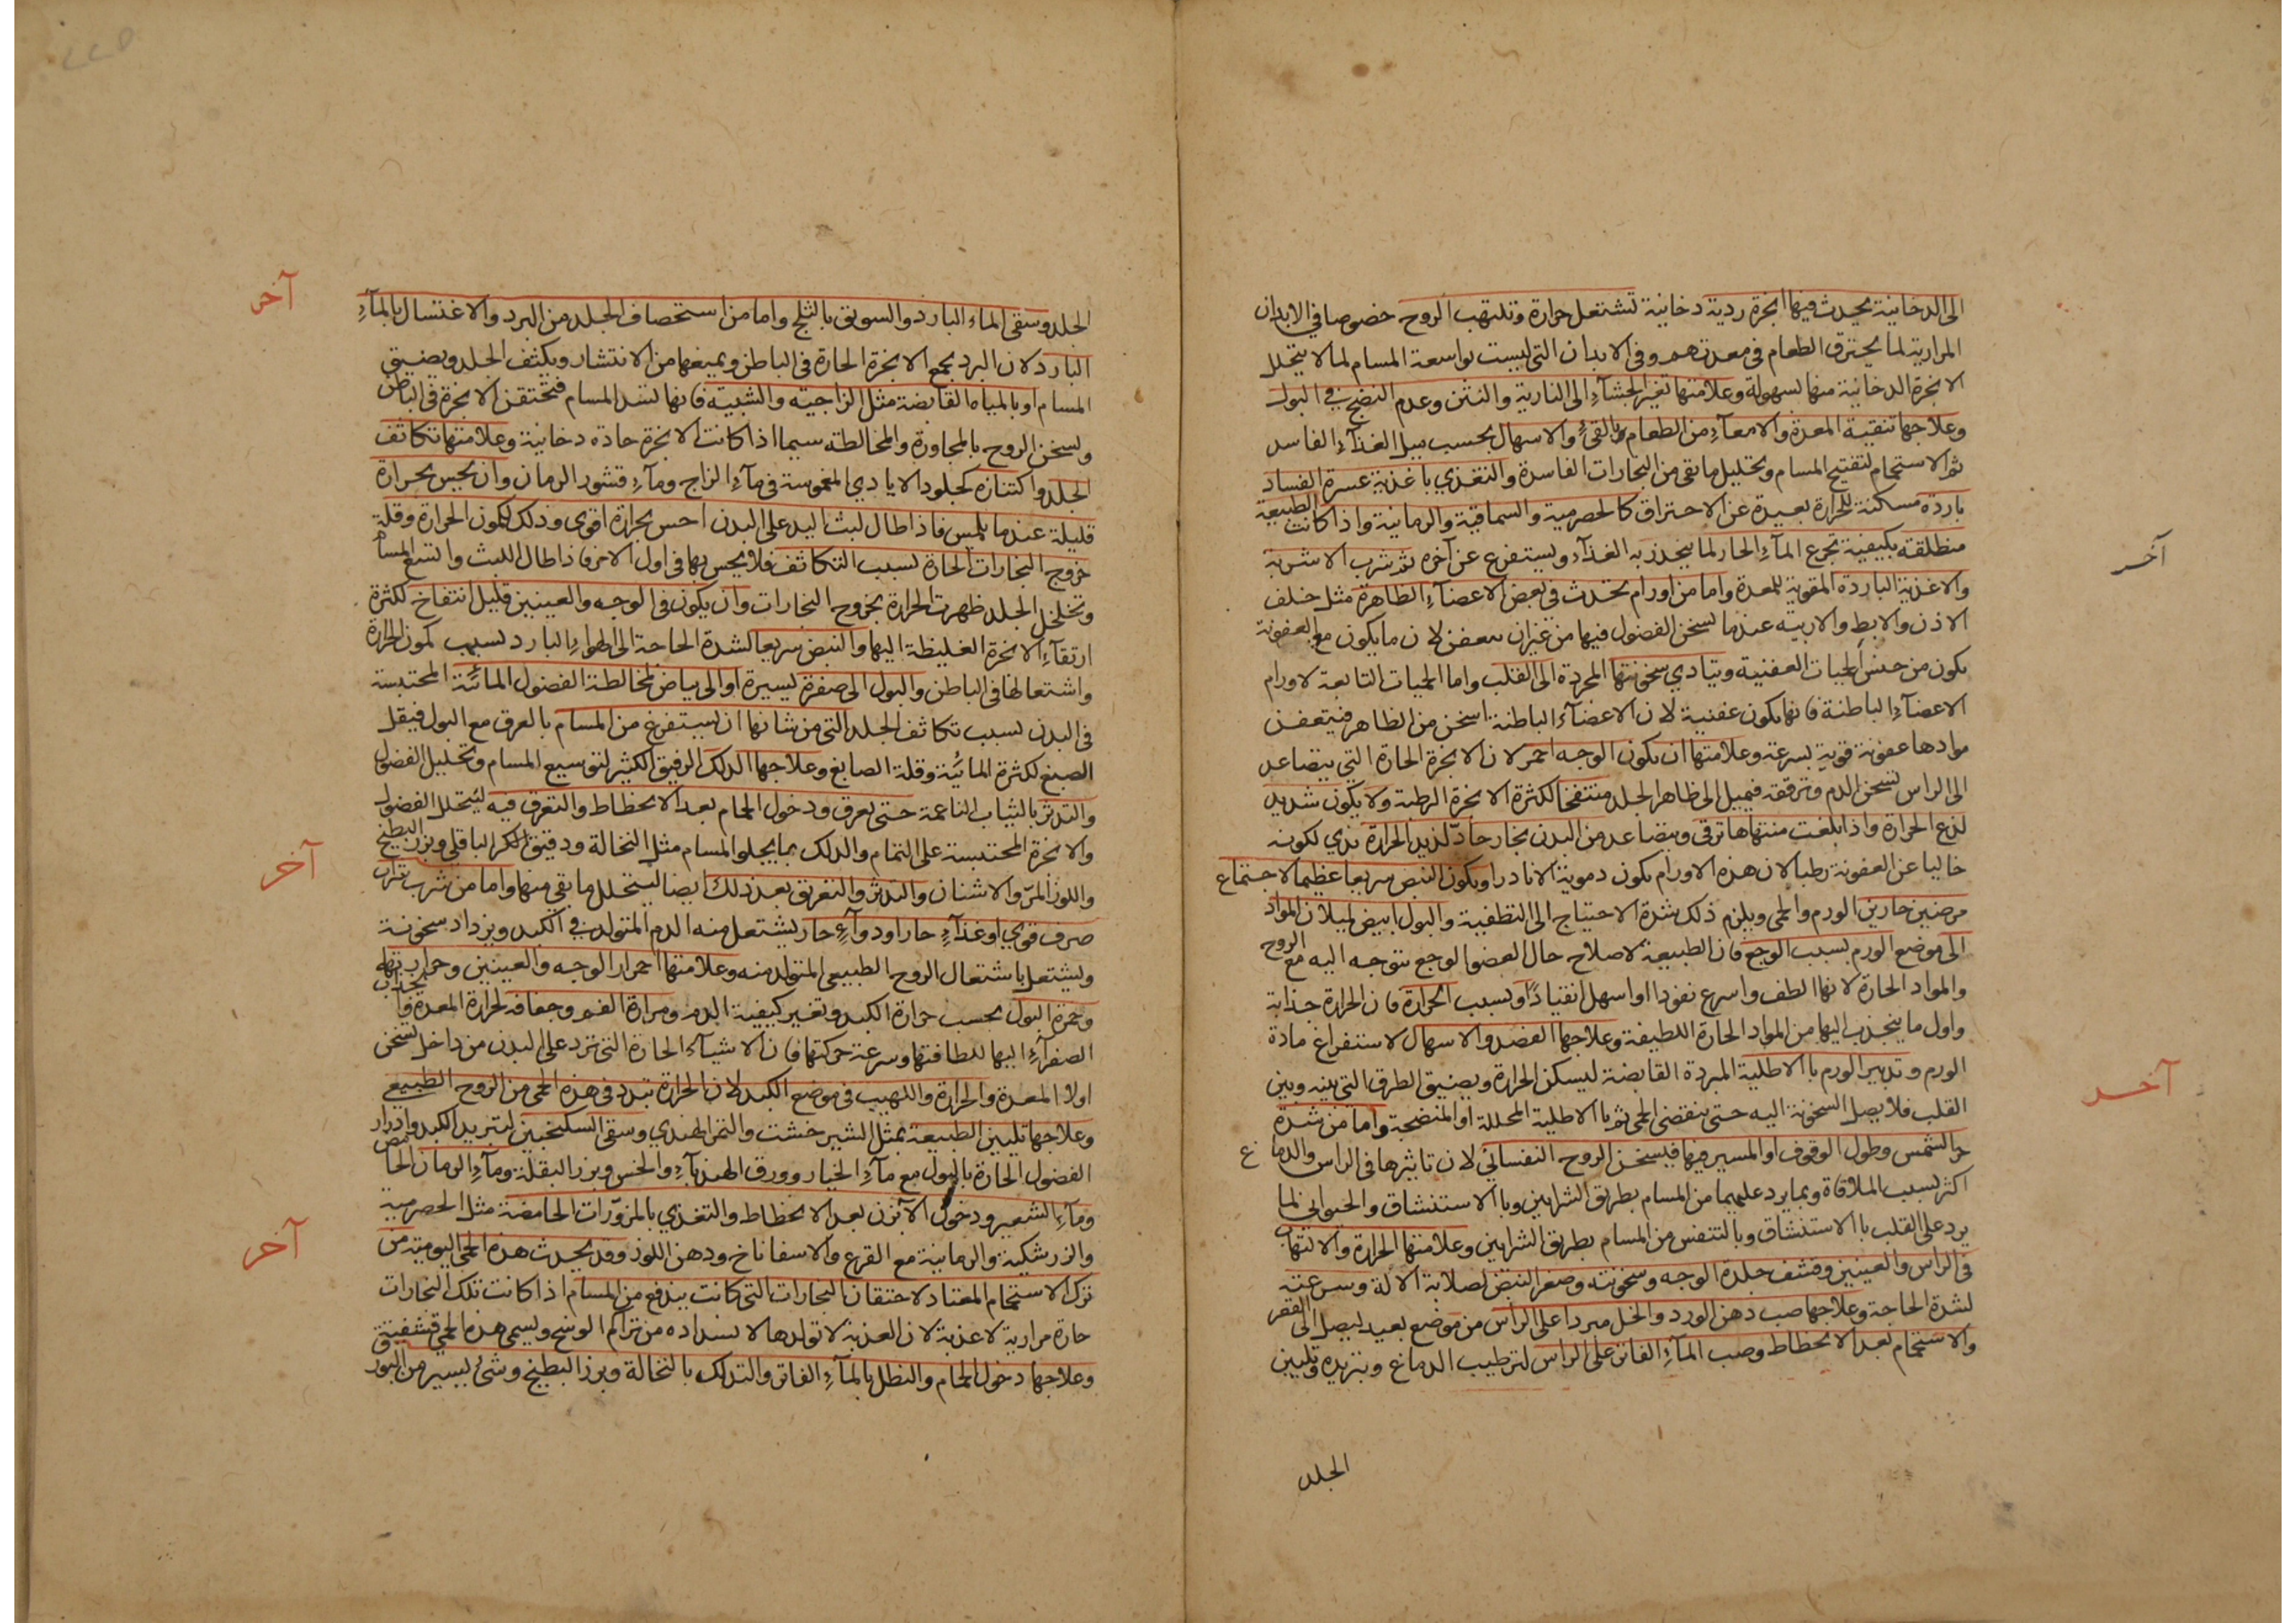 الى الدخانية يحدث فيها ابخرة ردية دخانية تشتعل حرارة وتلتهب الروح خصوصا في الابدان
المرارية لما يحترق الطعام في معدتهم وفى الابدان التى ليست بواسعة المسام لما لا يتحلل
الابخرة الدخانية منها بسهولة وعلامتها تغير الجشآء الى النارية والنتن وعدم النضج في البول
وعلاجها تنقية المعدة والامعآء من الطعام بالقئ والاسهال بحسب ميل الغذآء الفاسد
ثم الاستحمام لتفتيح المسام وتحليل ما بقى من البخارات الفاسدة والتغذي باغذية عسرة الفساد
باردة مسكنة للحرارة بعيدة عن الاحتراق كالحصرمية والسماقية والرمانية واذا كانت الطبيعة
منطلقة بكيفية تجرع المآء الحار لما ينحدر به الغذآء ويستفرغ عن آخره ثم شرب الاشربة
آخر
والاغذية الباردة المقوية للمعدة واما من اورام تحدث فى بعض الاعضآء الظاهرة مثل خلف
الاذن والابط والاربية عندما تسخن الفضول فيها من غير ان تتعفن لان ما يكون مع العفونة
يكون من جنس الحميات العفنية ويتادي سخونتها المجردة الى القلب واما الحميات التابعة لاورام
الاعضآء الباطنة فانها يكون عفنية لان الاعضآء الباطنة اسخن من الظاهر فيتعفن
موادها عفونة قوية بسرعة وعلامتها ان يكون الوجه احمر لان الابخرة الحارة التي يتصاعد
الى الراس تسخن الدم وترققه فيميل الى ظاهر الجلد منتفخا لكثرة الابخرة الرطبة ولا يكون شديد
لذع الحرارة واذا بلغت منتهاها ترقى ويتصاعد من البدن بخار حادّ لذيذ الحرارة ندي لكونه
خاليا عن العفونة رطبا لان هذه الاورام يكون دموية الا نادرا ويكون النبض سريعا عظيما لاجتماع
مرضين حارين الورم والحمى ويلزم ذلك شدة الاحتياج الى التطفية والبول ابيض لميلان المواد
الى موضع الورم بسبب الوجع فان الطبيعة لاصلاح حال العضو الوجع تتوجه اليه مع الروح
والمواد الحارة لانها الطف واسرع نفوذا او اسهل انقيادًا وبسبب الحرارة فان الحرارة جذابة
واول ما ينجذب اليها من المواد الحارة اللطيفة وعلاجها الفصد والاسهال لاستفراغ مادة
الورم وتدبير الورم بالاطلية المبردة القابضة ليسكن الحرارة ويضيق الطرق التى بينه وبين
آخر
القلب فلا يصل السخونة اليه حتى ينقضى الحمى ثم بالاطلية المحللة او المنضجة واما من شدة
حر الشمس وطول الوقوف او المسير فيها فيسخن الروح النفسانى لان تاثيرها فى الراس والدماغ
اكثر بسبب الملاقاة وبما يرد عليهما من المسام بطريق الشرايين وبالاستنشاق والحيوانى لما
يرد على القلب بالاستنشاق وبالتنفس من المسام بطريق الشرايين وعلامتها الحرارة والالتهاب
فى الراس والعينين وقشف جلدة الوجه وسخونته وصغر النبض لصلابة الالة وسرعته
لشدة الحاجة وعلاجها صب دهن الورد والخل مبردا على الراس من موضع بعيد ليصل الى القعر
والاستحمام بعد الانحطاط وصب المآء الفاتر على الراس لترطيب الدماغ وتبريده وتليين
الجلد
آخر
الجلد وسقى الماء البارد والسويق بالثلج واما من استحصاف الجلد من البرد والاغتسال بالمآء
البارد لان البرد يجمع الابخرة الحارة فى الباطن ويمنعها من الانتشار ويكثف الجلد ويضيق
المسام او بالمياه القابضة مثل الزاجية والشبية فانها تسد المسام فتحتقن الابخرة فى الباطن
ويسخن الروح بالمجاورة والمخالطة سيما اذا كانت الابخرة حادة دخانية وعلامتها تكاثف
الجلد واكتنازه كجلود الايادي المغموسة فى مآء الزاج ومآء قشور الرمان وان يحس بحرارة
قليلة عندما يلمس فاذا طال لبث اليد على البدن احس بحرارة اقوى وذلك لكمون الحرارة وقلة
خروج البخارات الحارة بسبب التكاثف فلا يحس بها فى اول الامر فاذا طال اللبث واتسع المسام
وتخلخل الجلد ظهرت الحرارة بخروج البخارات وان يكون فى الوجه والعينين قليل انتفاخ لكثرة
ارتقآء الابخرة الغليظة اليها والنبض سريعا لشدة الحاجة الى الهوآء البارد بسبب كمون الحرارة
واشتعالها فى الباطن والبول الى صفرة يسيرة او الى بياض لمخالطة الفضول المائية المحتبسة
فى البدن بسبب تكاثف الجلد التى من شانها ان يستفرغ من المسام بالعرق مع البول فيقل
الصبغ لكثرة المائية وقلة الصابغ وعلاجها الدلك الرفيق الكثير لتوسيع المسام وتحليل الفضول
والتدثر بالثياب الناعمة حتى يعرق ودخول الحمام بعد الانحطاط والتعرق فيه ليتحلل الفضول
والابخرة المحتبسة على التمام والدلك بما يجلو المسام مثل النخالة ودقيق الباقلى وبزر البطيخ
آخر
واللوز المرّ والاشنان والتدثر والتعريق بعد ذلك ايضا ليتحلل ما بقي منها واما من شرب شراب
صرف قوي او غذآء حار او دوآء حار يشتعل منه الدم المتولد في الكبد ويزداد سخونة
ويشتعل باشتعال الروح الطبيعى المتولد منه وعلامتها احمرار الوجه والعينين وحرارتهما
وحمرة البول بحسب حرارة الكبد وتغير كيفية الدم ومرارة الفم وجفافه لحرارة المعدة وانجذاب
الصفرآء اليها للطافتها وسرعة حركتها فان الاشيآء الحارة التى ترد على البدن من داخل تسخن
اولا المعدة والحرارة واللهيب فى موضع الكبد لان الحرارة تبدو فى هذه الحمى من الروح الطبيعي
وعلاجها تليين الطبيعة بمثل الشيرخشت والتمر الهندي وسقى السكنجبين لتبريد الكبد وادرار
الفضول الحارة بالبول مع مآء الخيار وورق الهندبآء والخس وبزر البقلة ومآء الرمان الحامض
ومآء الشعير ودخول الآبزن بعد الانحطاط والتغذي بالمزوّرات الحامضة مثل الحصرمية
آخر
والزرشكية والرمانية مع القرع والاسفاناخ ودهن اللوز وقد يحدث هذه الحمى اليومية من
ترك الاستحمام المعتاد لاحتقان البخارات التى كانت يندفع من المسام اذا كانت تلك البخارات
حارة مرارية لا عذبة لان العذبة لا تولدها لانسداده من تراكم الوسخ ويسمى هذه الحمى قشفية
وعلاجها دخول الحمام والتطل بالمآء الفاتر والتدلك بالنخالة وبزر البطيخ وشئ يسير من البورق